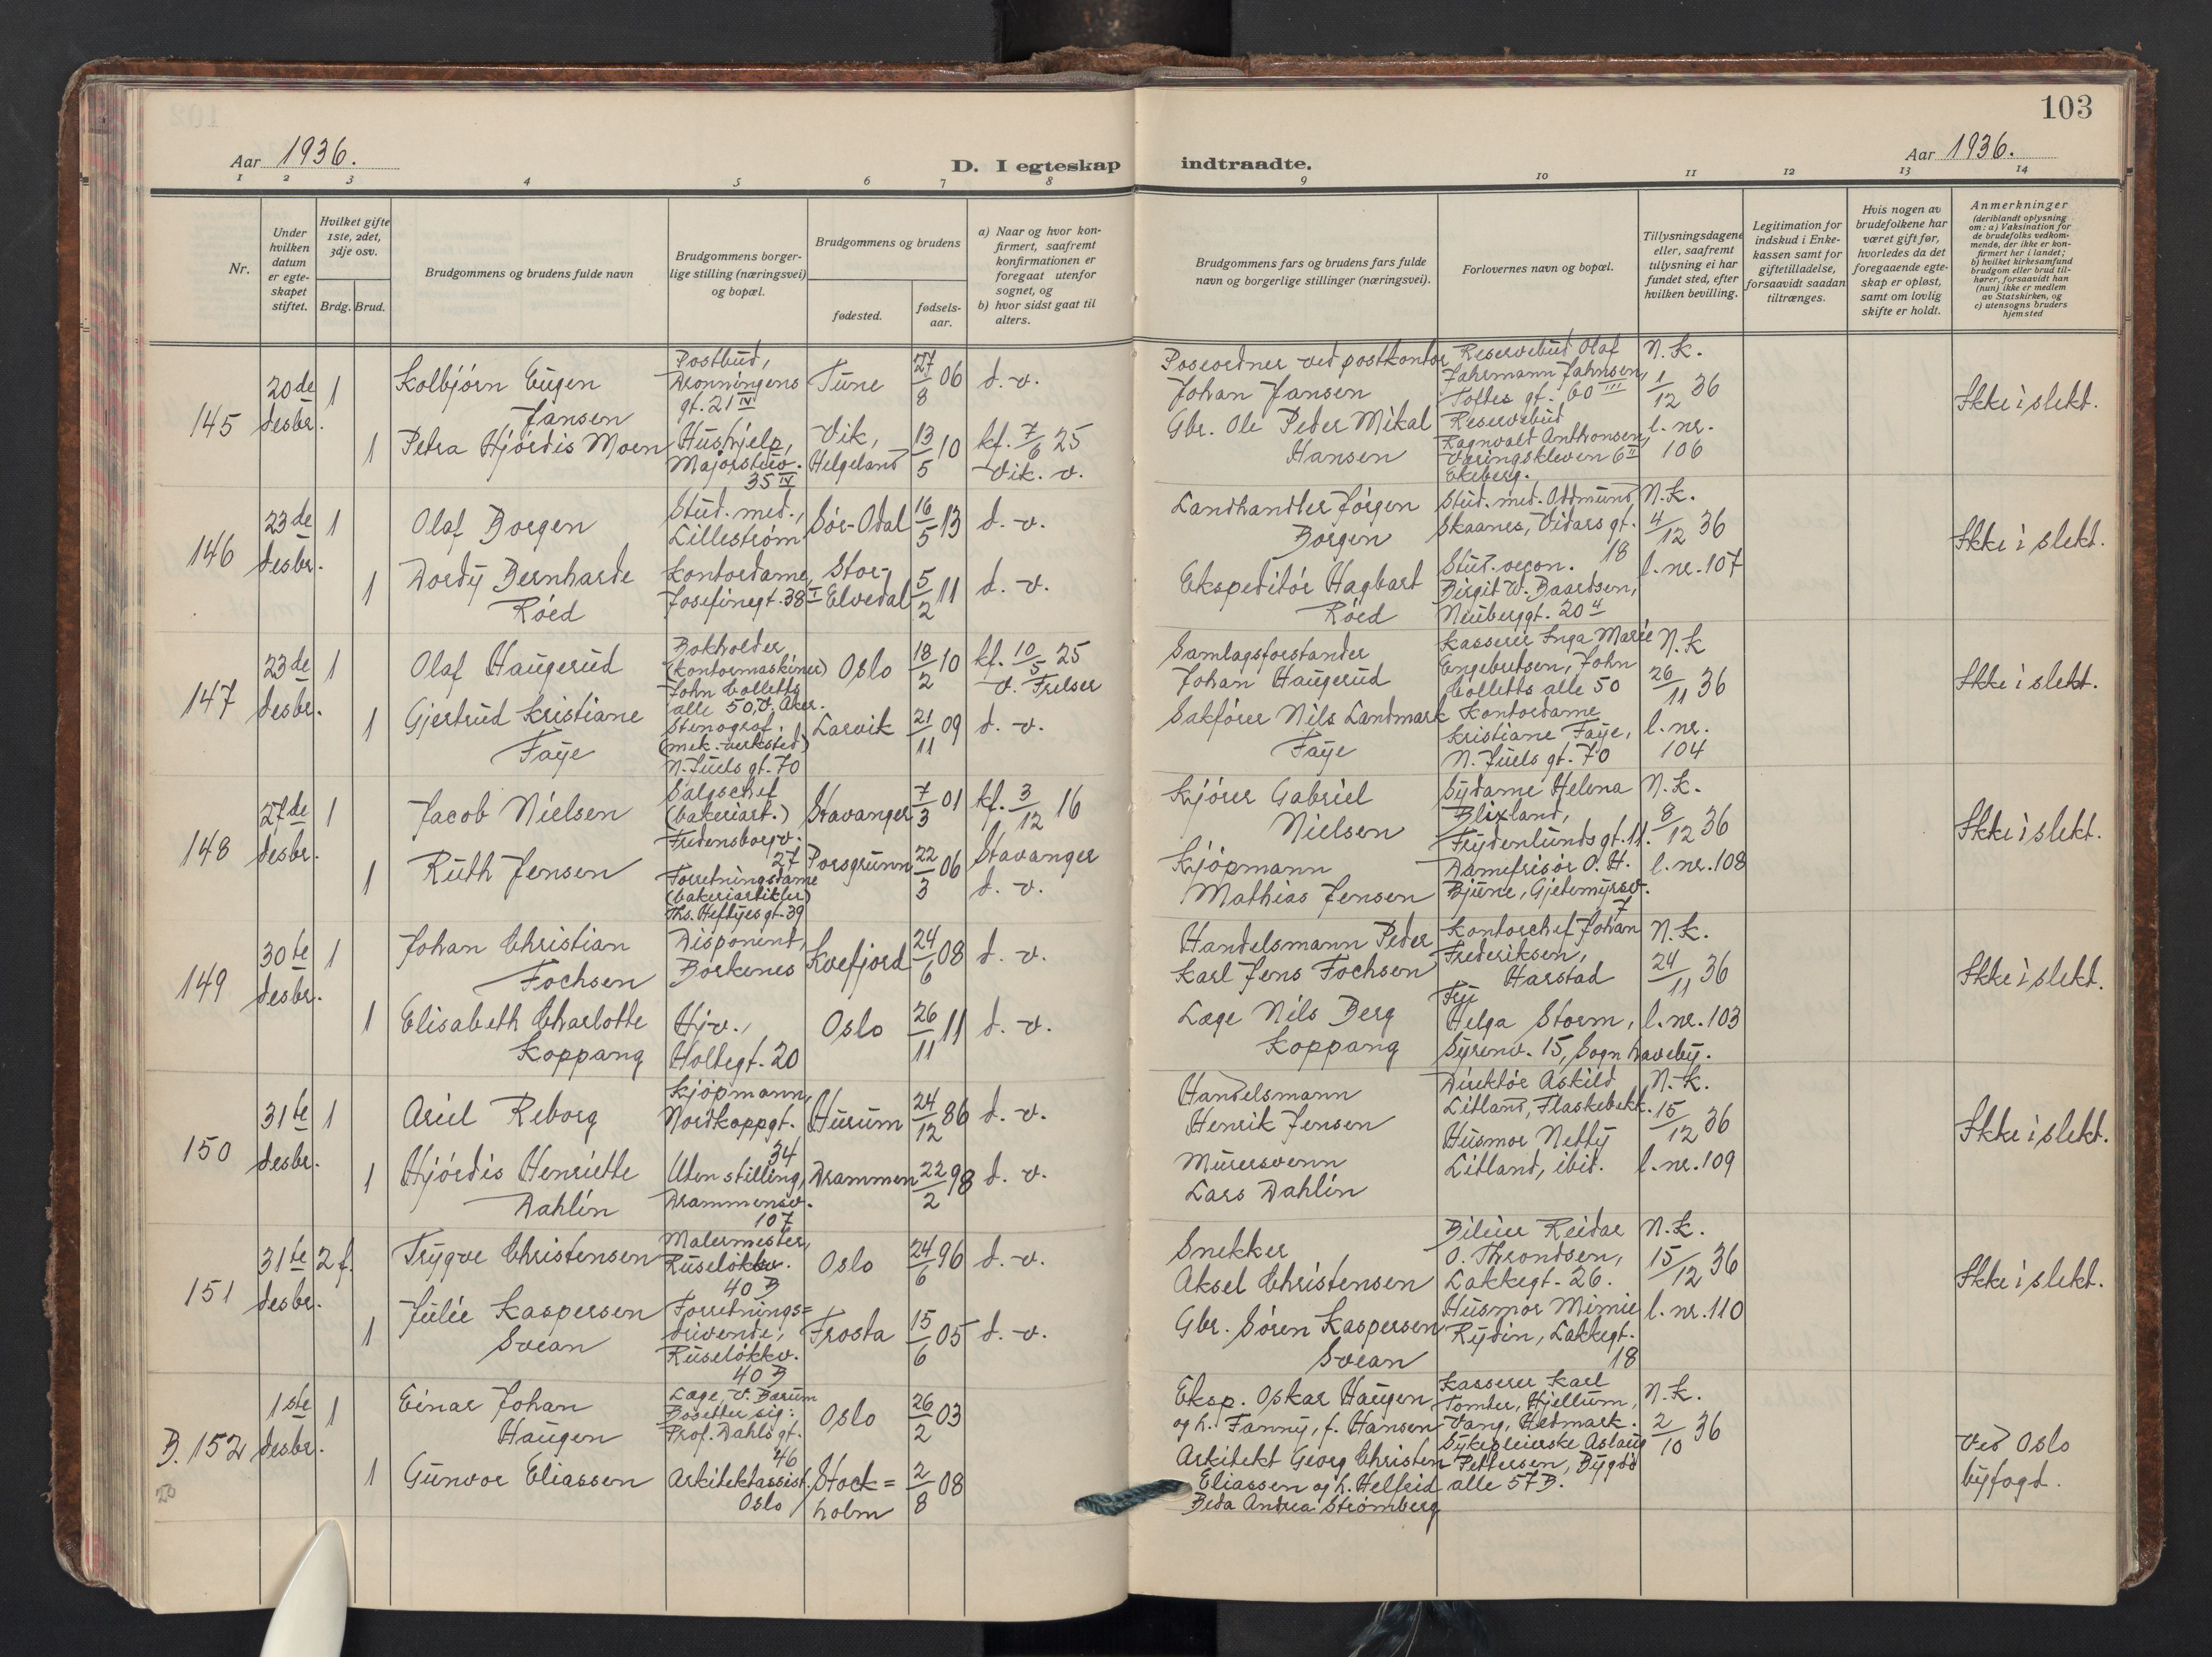 103
Aar 1936.
D. I egteskap indtraadte.
Aar 1936.
1 2 3 4 5 6 7 8 9 10 11 12 13 14
Nr.
Under
hvilken
datum
er egte-
skapet
stiftet.
Hvilket gifte
1ste, 2det,
3dje osv.
Brdg. Brud.
Brudgommens og brudens fulde navn
Brudgommens borger-
lige stilling (næringsvei)
og bopæl.
Brudgommens og brudens
fødested.
fødsels-
aar.
a) Naar og hvor kon-
firmert, saafremt
konfirmationen er
foregaat utenfor
sognet, og
b) hvor sidst gaat til
alters.
Brudgommens fars og brudens fars fulde
navn og borgerlige stillinger (næringsvei).
Forlovernes navn og bopæl.
Tillysningsdagene
eller, saafremt
tillysning ei har
fundet sted, efter
hvilken bevilling.
Legitimation for
indskud i Enke-
kassen samt for
giftetilladelse,
forsaavidt saadan
tiltrænges.
Hvis nogen av
brudefolkene har
været gift før,
hvorledes da det
foregaaende egte-
skap er opløst,
samt om lovlig
skifte er holdt.
Anmerkninger
(deriblandt oplysning
om: a) Vaksination for
de brudefolks vedkom-
mende, der ikke er kon-
firmert her i landet;
b) hvilket kirkesamfund
brudgom eller brud til-
hører, forsaavidt han
(hun) ikke er medlem
av Statskirken, og
c) utensogns bruders
hjemsted
145
20de
desbr.
1
Kolbjørn Eugen
Jansen
Postbud,
Dronningens
gt. 21 IV
Tune
27/8 06
d. v.
Johan Jansen
Reservebud Olaf
Jahrmann Jahnsen,
Toftes gt. 60 III
N. K.
1/12 36
l. nr.
106
Ikke i slekt.
1
Petra Hjørdis Moen
Hushjelp,
Majorstuv.
35 IV
Vik,
Helgeland
13/5 10
kf. 7/6 25
Vik. v.
Gbr. Ole Peder Mikal
Hansen
Reservebud
Ragnvald Anthonsen,
Væringskleven 6 II
Ekeberg.
146
23de
desbr.
1
Olaf Borgen
Stud. med.,
Lillestrøm
Sør-Odal
16/5 13
d. v.
Landhandler Jørgen
Borgen
Stud. med. Oddmund
Skaanes, Vidars gt.
18
N. K.
4/12 36
l. nr. 107
Ikke i slekt.
1
Dordy Bernharde
Røed
Kontordame,
Josefinegt. 38 I
Stor-
Elvedal
5/2 11
d. v.
Ekspeditør Hagbart
Røed
Stud. oecon.
Birgit W. Baardsen,
Neuberggt. 20 4
147
23de
desbr.
1
Olaf Haugerud
Bokholder
(kontormaskiner)
John Colletts
alle 50, V. Aker.
Oslo
18/2 10
kf. 10/5 25
v. Frelser
Samlagsforstander
Johan Haugerud
Kasserer Inga Marie
Engebretsen, John
Colletts alle 50
N. K
26/11 36
l. nr.
104
Ikke i slekt.
1
Gjertrud Kristiane
Faye
Stenograf,
(mek. verksted)
N. Juels gt. 70
Larvik
21/11 09
d. v.
Sakfører Nils Landmark
Faye
Kontordame
Kristiane Faye,
N. Juels gt. 70
148
27de
desbr.
1
Jacob Nielsen
Salgschef
(bakeriart.)
Fredensborgv.
27
Stavanger
7/3 01
kf. 3/12 16
Stavanger
Kjører Gabriel
Nielsen
Sydame Helena
Blixland,
Frydenlunds gt. 11.
N. K.
8/12 36
l. nr. 108
Ikke i slekt.
1
Ruth Jensen
Forretningsdame
(bakeriartikler)
Ths. Heftyes gt. 39
Porsgrunn
22/3 06
d. v.
Kjøpmann
Mathias Jensen
Damefrisør O. H.
Bjune, Gjetemyrsv.
7
149
30te
desbr.
1
Johan Christian
Fochsen
Disponent,
Borkenes
Kvefjord
24/6 08
d. v.
Handelsmann Peder
Karl Jens Fochsen
Kontorchef Johan
Frederiksen,
Harstad
N. K.
24/11 36
l. nr. 103
Ikke i slekt.
1
Elisabeth Charlotte
Koppang
Hjv.,
Holtegt. 20
Oslo
26/11 11
d. v.
Læge Nils Berg
Koppang
Frk
Helga Storm,
Syrenv. 15, Sogn haveby.
150
31te
desbr.
1
Ariel Reborg
Kjøpmann,
Nordkappgt.
34
Hurum
24/12 86
d. v.
Handelsmann
Henrik Jensen
Direktør Askild
Litland, Flaskebekk.
N. K.
15/12 36
l. nr. 109
Ikke i slekt.
1
Hjørdis Henriette
Dahlin
Uten stilling,
Drammensv.
107
Drammen
22/2 98
d. v.
Murersvenn
Lars Dahlin
Husmor Netty
Litland, ibid.
151
31te
desbr.
2 f.
Trygve Christensen
Malermester,
Ruseløkkv.
40 B
Oslo
24/6 96
d. v.
Snekker
Aksel Christensen
Bileier Reidar
O. Throndsen,
Lakkegt. 26.
N. K.
15/12 36
l. nr. 110
Ikke i slekt.
1
Julie Kaspersen
Svean
Forretnings=
drivende,
Ruseløkkv.
40 B
Frosta
15/6 05
d. v.
Gbr. Søren Kaspersen
Svean
Husmor Mimie
Rydin, Lakkegt.
18
B. 152
1ste
desbr.
1
Einar Johan
Haugen
Læge, V. Bærum
Bosetter sig:
Prof. Dahls gt.
46
Oslo
26/2 03
Eksp. Oskar Haugen
og h. Fanny, f. Hansen
Kasserer Karl
Tomter, Hjellum,
Vang, Hedmark.
N. K.
2/10 36
Ved Oslo
byfogd.
1
Gunvor Eliassen
Arkitektassist.
Oslo
Stock=
holm
2/8 08
Arkitekt Georg Christen
Eliassen og h. Helfrid
Beda Andrea Strømberg
Sykepleierske Aslaug
Pettersen, Bygdø
alle 57 B.